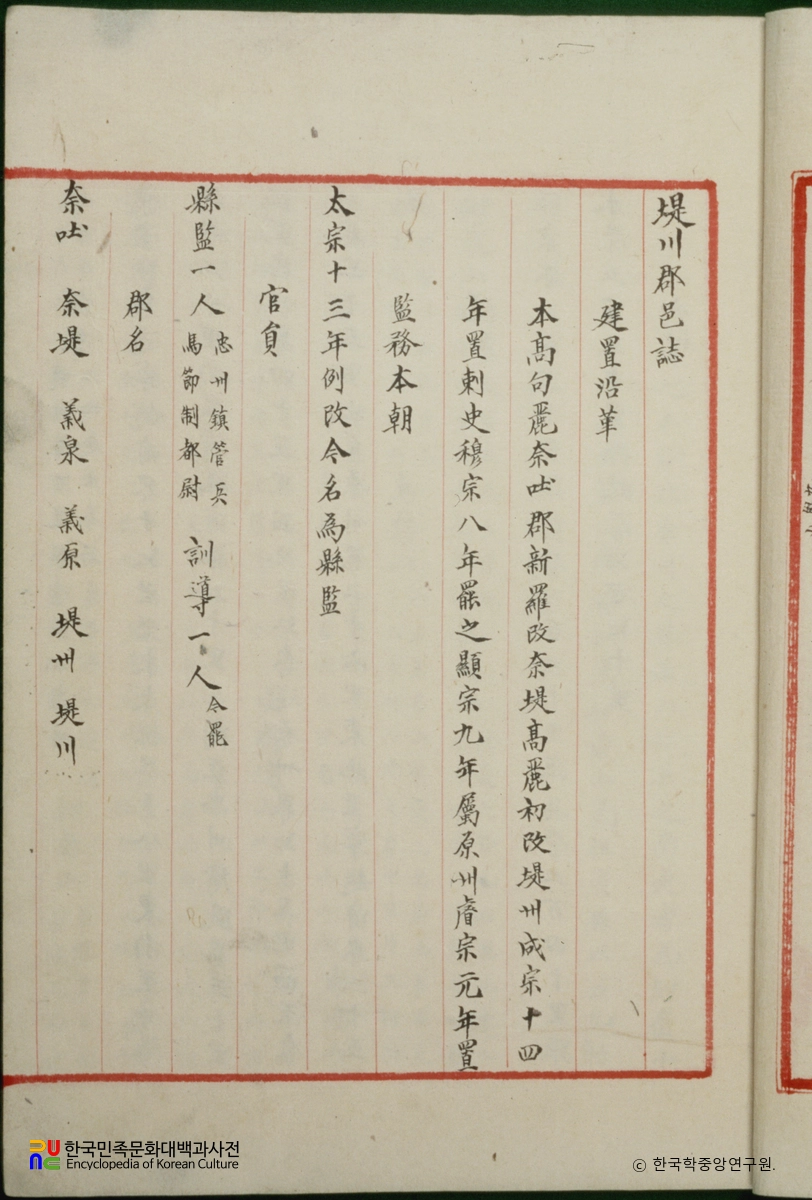 堤川郡邑誌
建置沿革
本高句麗奈吐郡新羅改奈堤高麗初改堤州成宗十四
年置刺史穆宗八年罷之顯宗九年屬原州睿宗元年置
監務本朝
太宗十三年例改今名為縣監
官員
縣監一人 忠州鎮管兵
馬節制都尉 訓導一人 今罷
郡名
奈吐 奈堤 義泉 義原 堤州 堤川
한국민족문화대백과사전
Encyclopedia of Korean Culture
© 한국학중앙연구원.